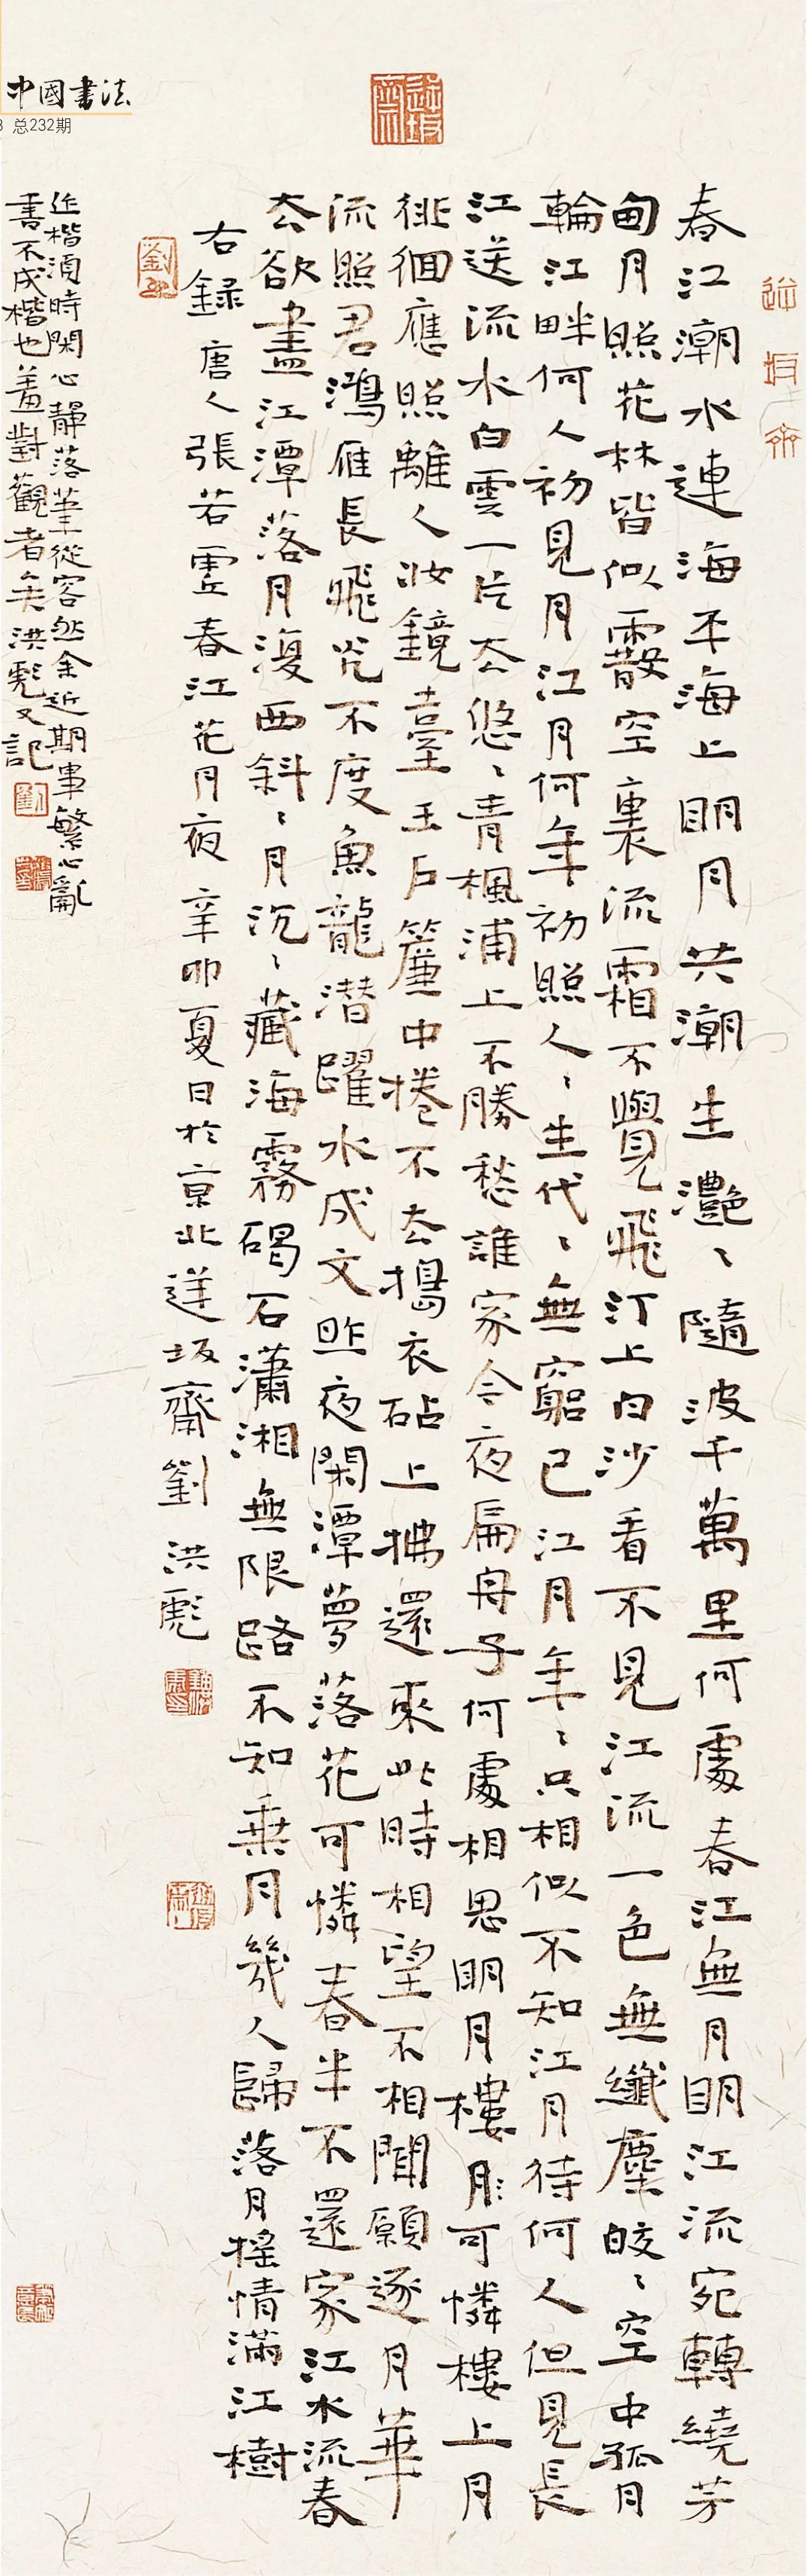 中國書法
总232期
逆坂齋
春江潮水連海平海上明月共潮生灧〻隨波千萬里何處春江無月明江流宛轉繞芳
甸月照花林皆似霰空裏流霜不覺飛汀上白沙看不見江流一色無纖塵皎〻空中孤月
輪江畔何人初見月江月何年初照人〻生代〻無窮已江月年〻只相似不知江月待何人但見長
江送流水白雲一片去悠〻青楓浦上不勝愁誰家今夜扁舟子何處相思明月樓月可憐樓上月
徘徊應照離人妝鏡臺玉戶簾中捲不去擣衣砧上拂還來此時相望不相聞願逐月華
流照君鴻雁長飛光不度魚龍潛躍水成文昨夜閑潭夢落花可憐春半不還家江水流春
去欲盡江潭落月復西斜〻月沉〻藏海霧碣石瀟湘無限路不知乘月幾人歸落月搖情滿江樹
右録唐人張若虛春江花月夜辛卯夏日於京北逆坂齋劉洪彪
近楷須時閑心靜落筆從容然余近期事繁心亂
書不成楷也羞對觀者矣洪彪又記